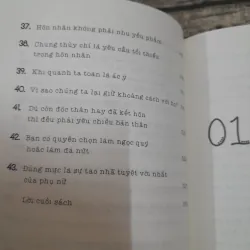 37. Hôn nhân không phải nhu yếu phẩm
38. Chung thủy chỉ là yêu cầu tối thiểu
trong hôn nhân
39. Khi quanh ta toàn là ác ý
40. Vì sao chúng ta lại giữ khoảng cách với
41. Dù còn độc thân hay đã kết hôn
thì đều phải yêu chiều bản thân
42. Bạn có quyền chọn làm ngọc quý
hoặc làm đá nứt
43. Đúng mực là sự tao nhã tuyệt vời nhất
của phụ nữ
Lời cuối sách
01